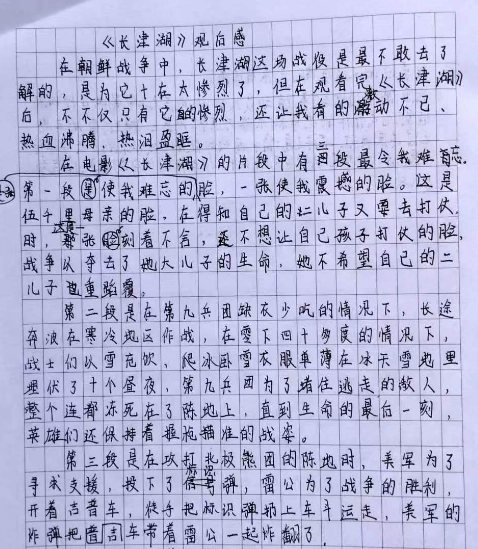 《长津湖》观后感
在朝鲜战争中，长津湖这场战役是最不敢去了
解的，是为它十在太惨烈了，但在观看完《长津湖》
后，不不仅只有它的惨烈，还让我看的激动不已、
热血沸腾，热泪盈眶。
在电影《长津湖》的片段中有三段最令我难忘。
第一段是使我难忘的脸，一张使我震撼的脸。这是
伍千里母亲的脸，在得知自己的二儿子又要去打仗
时，这是一张脸刻着不舍，是不想让自己孩子打仗的脸，
战争以夺去了她大儿子的生命，她不希望自己的二
儿子也重蹈覆。
第二段是在第九兵团缺衣少吃的情况下，长途
奔波在寒冷地区作战，在零下四十多度的情况下，
战士们以雪充饮，爬冰卧雪衣服单薄在冰天雪地里
埋伏了十个昼夜，第九兵团为了堵住逃走的敌人，
整个连都冻死在了阵地上，直到生命的最后一刻，
英雄们还保持着握枪瞄准的战姿。
第三段是在攻打北极熊团的阵地时，美军为了
寻求支援，投下了标识弹，雷公为了战争的胜利，
开着吉普车，徒手把标识弹扔上车斗运走，美军的
炸弹把普吉车带着雷公一起炸翻了